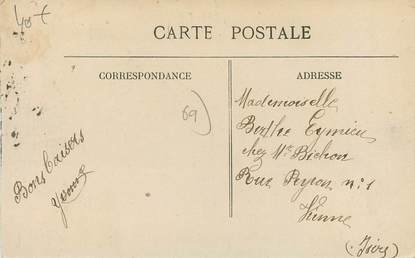 40 €
CARTE POSTALE
CORRESPONDANCE
ADRESSE
69)
Bons baisers
Yvonne
Mademoiselle
Berthe Eymieu
chez Mr Bichon
Rue Peyron n° 1
Vienne
(Isère)